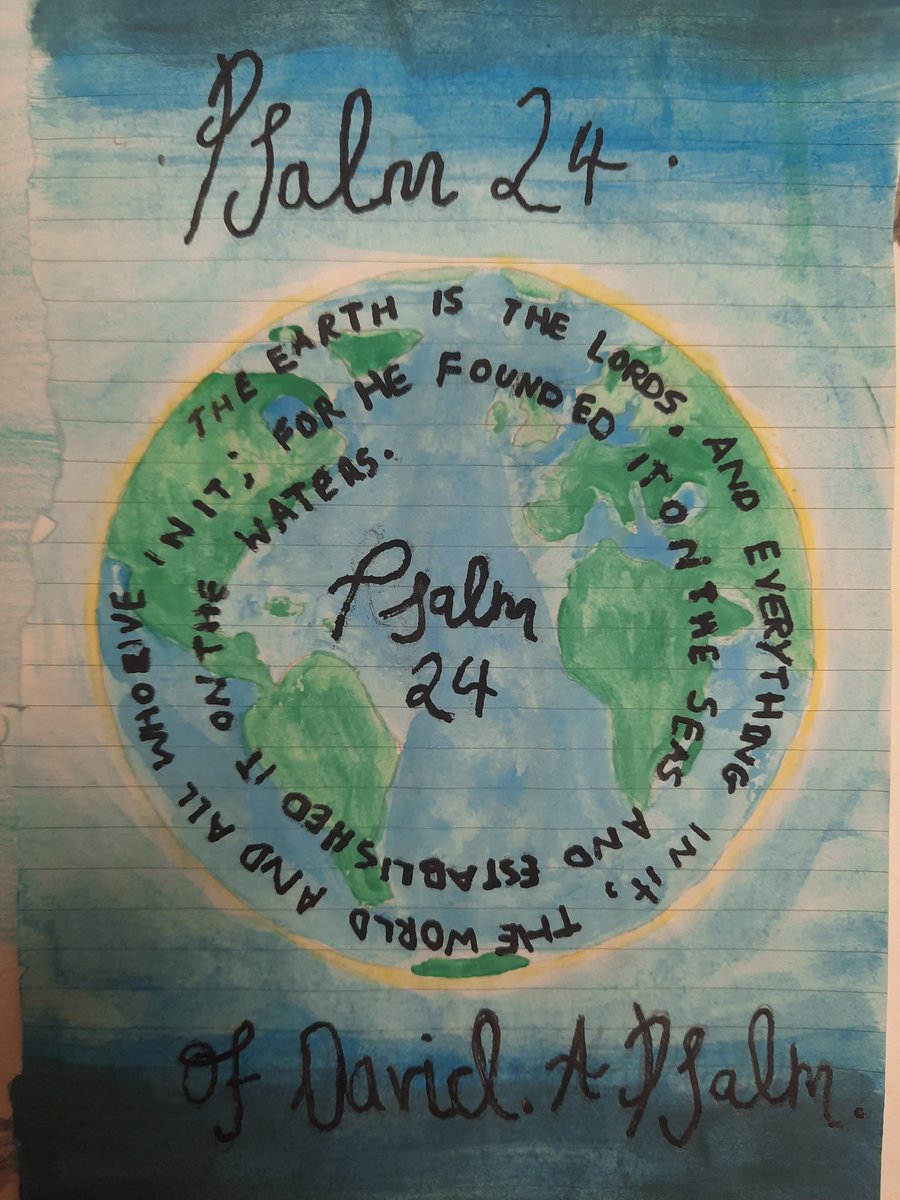 . Psalm 24 .
THE EARTH IS THE LORDS. AND EVERYTHING IN IT, THE WORLD AND ALL WHO LIVE IN IT; FOR HE FOUNDED IT ON THE SEAS AND ESTABLISHED IT ON THE WATERS.
Psalm
24
Of David. A Psalm.